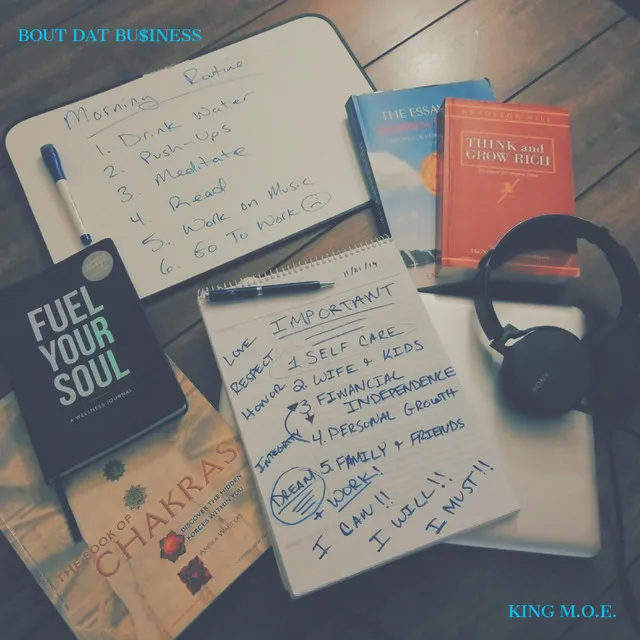 BOUT DAT BU$INESS
Morning Routine
1. Drink Water
2. Push-Ups
3. Meditate
4. Read
5. Work on Music
6. Go To Work
THE ESSA
NAPOLEON HILL
THINK and
GROW RICH
FUEL
YOUR
SOUL
A WELLNESS JOURNAL
THE BOOK OF
CHAKRAS
DISCOVER THE HIDDEN
FORCES WITHIN YOU
IMPORTANT
LOVE
RESPECT
HONOR
INTEGRITY
1. SELF CARE
2. WIFE & KIDS
3 FINANCIAL
INDEPENDENCE
4. PERSONAL GROWTH
5. FAMILY & FRIENDS
DREAM
+ WORK!
I CAN!!
I WILL!!
I MUST!!
SONY
KING M.O.E.